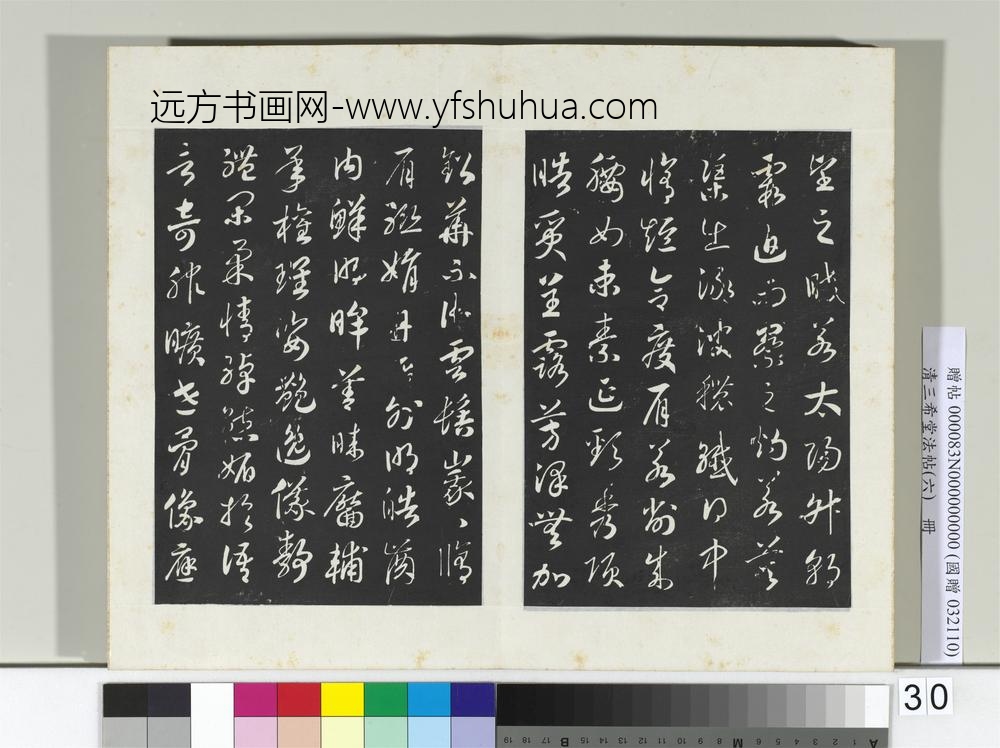 远方书画网-www.yfshuhua.com
望之晈若太陽升朝
霞迫而察之灼若芙
渠出淥波穠纖得中
脩短合度肩若削成
腰如束素延頸秀項
皓質呈露芳澤無加
鉛華不御雲髻峩〻脩
眉聯娟丹唇外朗皓齒
内鮮明眸善睞靨輔
承權瓌姿艷逸儀静
體閑柔情綽態媚於語
言奇服曠世骨像應
贈帖 000083N000000000 (國贈 032110)
清三希堂法帖(六) 冊
30